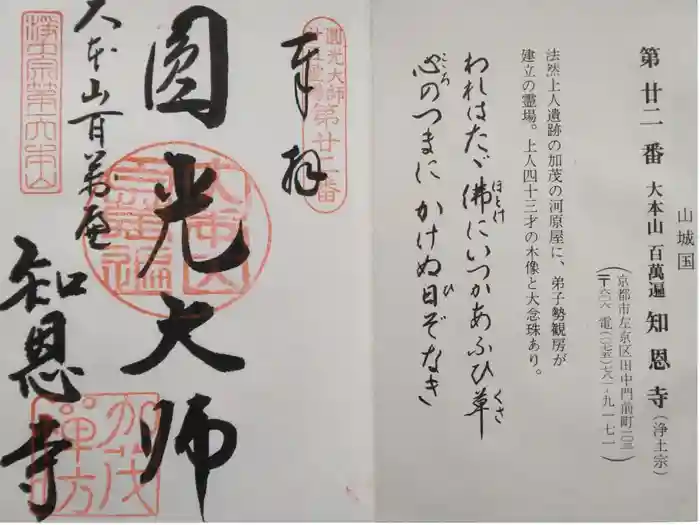 山城国
第廿二番 大本山 百萬遍 知恩寺（浄土宗）
（京都市左京区田中門前町一〇三
〒六〇六 電（〇七五）七八一-九一七一）
法然上人遺跡の加茂の河原屋に、弟子勢観房が
建立の霊場。上人四十三才の木像と大念珠あり。
われはたゞ佛にいつかあふひ草
ほとけ
くさ
心のつまに かけぬ日ぞなき
こころ
ひ
圓光大師
廿五霊場第廿二番
奉拝
圓光大師
大本山百萬遍
知恩寺
浄土宗第六本山
大本山百萬遍
加茂禅房